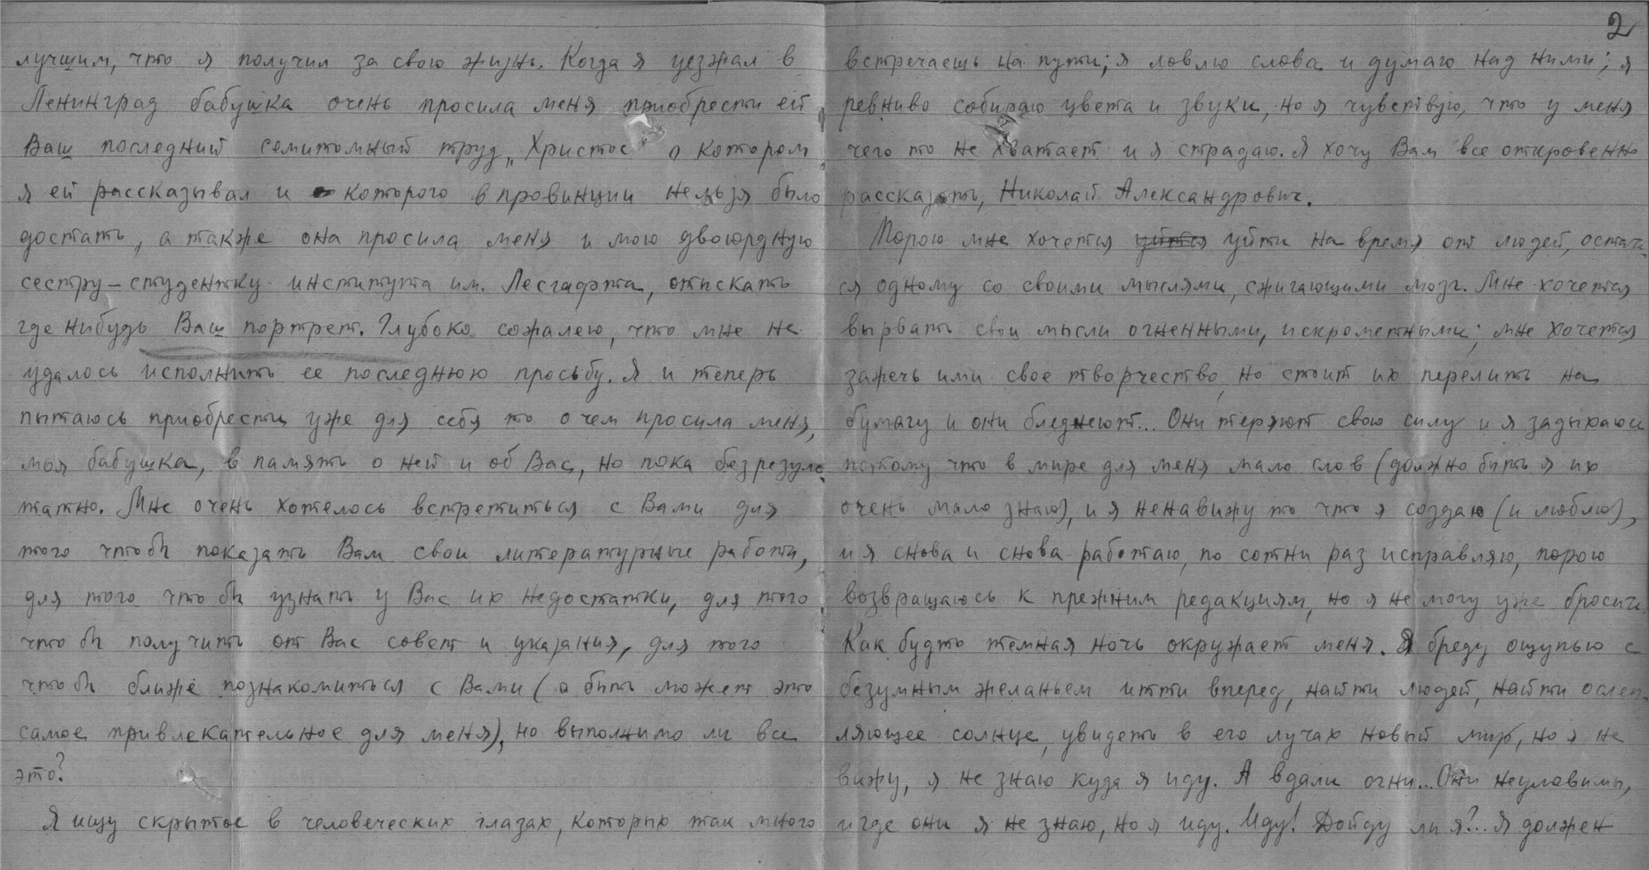 лучшим, что я получил за свою жизнь. Когда я уезжал в
Ленинград бабушка очень просила меня приобрести ей
Ваш последний семитомный труд „Христос" о котором
я ей рассказывал и которого в провинции нельзя было
достать, а также она просила меня и мою двоюрдную
сестру – студентку института им. Лесгафта, отискать
где нибудь Ваш портрет. Глубоко сожалею, что мне не
удалось исполнить ее последнюю просьбу. Я и теперь
пытаюсь приобрести уже для себя то о чем просила меня,
моя бабушка, в память о ней и об Вас, но пока безрезуль
татно. Мне очень хотелось встретиться с Вами для
того чтобы показать Вам свои литературные работы,
для того что бы узнать у Вас их недостатки, для того
что бы получить от Вас совет и указания, для того
что бы ближе познакомиться с Вами (а быть может это
самое привлекательное для меня), но выполнимо ли все
это?
Я ищу скрытое в человеческих глазах, которых так много
2
встречаешь на пути; я ловлю слова и думаю над ними; я
ревниво собираю цвета и звуки, но я чувствую, что у меня
чего то не хватает и я страдаю. Я хочу Вам все откровенно
рассказать, Николай Александрович.
Порою мне хочется уйти на время от людей, остать
ся одному со своими мыслями, сжигающими мозг. Мне хочется
вырвать свои мысли огненными, искрометными; мне хочется
зажечь ими свое творчество, но стоит их перелить на
бумагу и они бледнеют... Они теряют свою силу и я задыхаюсь
потому что в мире для меня мало слов (должно быть я их
очень мало знаю), и я ненавижу то что я создаю (и люблю),
и я снова и снова работаю, по сотни раз исправляю, порою
возвращаюсь к прежним редакциям, но я не могу уже бросить.
Как будто темная ночь окружает меня. Я бреду ощупью с
безумным желаньем итти вперед, найти людей, найти ослеп-
ляющее солнце, увидеть в его лучах новый мир, но я не
вижу, я не знаю куда я иду. А вдали огни... Они неуловимы,
и где они я не знаю, но я иду. Иду! Дойду ли я?.. Я должен